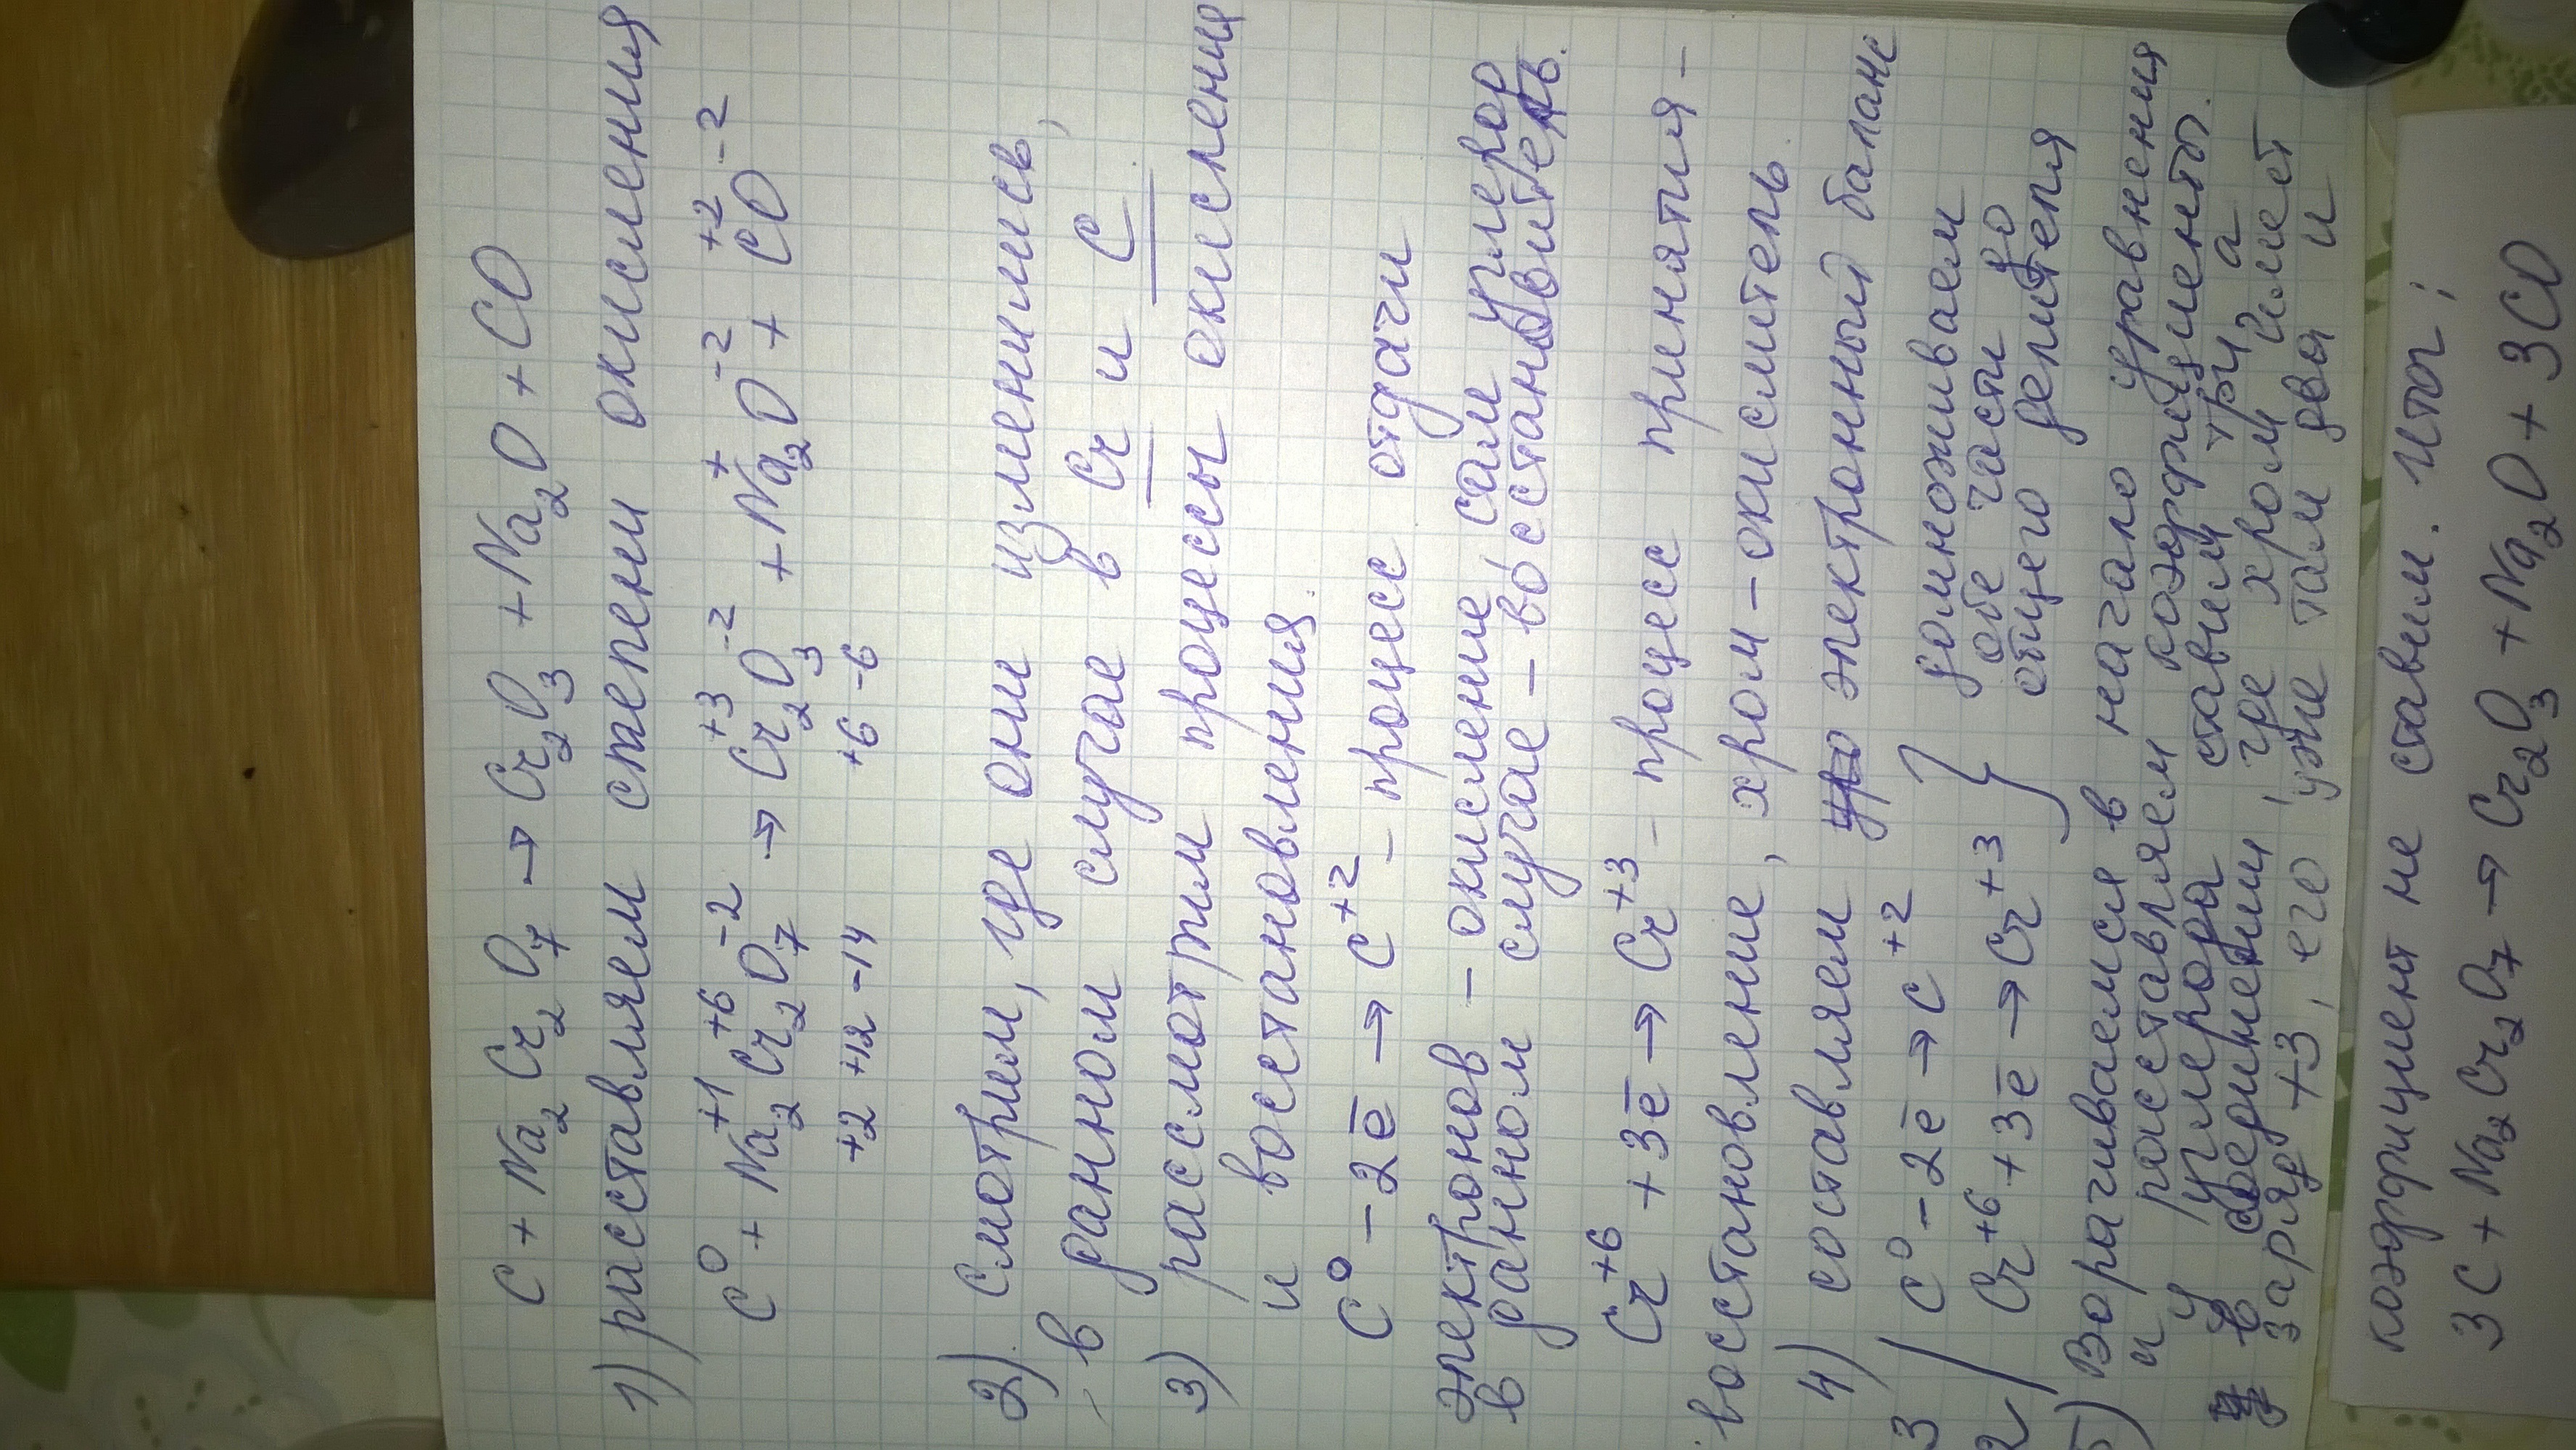 C + Na₂Cr₂O₇ → Cr₂O₃ + Na₂O + CO
1) расставляем степени окисления
C⁰ + Na₂⁺¹Cr₂⁺⁶O₇⁻² → Cr₂⁺³O₃⁻² + Na₂⁺O⁻² + C⁺²O⁻²
+2 +12 -14 +6 -6
2). Смотрим, где они изменились,
- в данном случае в Cr и C
3) рассмотрим процессы окисления
и восстановления.
C⁰ - 2ē → C⁺² - процесс отдачи
электронов - окисление, сам углерод
в данном случае - восстановитель.
Cr⁺⁶ + 3ē → Cr⁺³ - процесс принятия -
восстановление, хром - окислитель.
4) составляем электронный баланс
3 | C⁰ - 2ē → C⁺² } домножаем
обе части до
2 | Cr⁺⁶ + 3ē → Cr⁺³ общего делителя
5) Ворачиваемся в начало уравнения
и расставляем коэффициенты.
У углерода ставим три, а
в соединении, где хром имеет
заряд +3, его уже там два и
коэффициент не ставим. Итог:
3C + Na₂Cr₂O₇ → Cr₂O₃ + Na₂O + 3CO